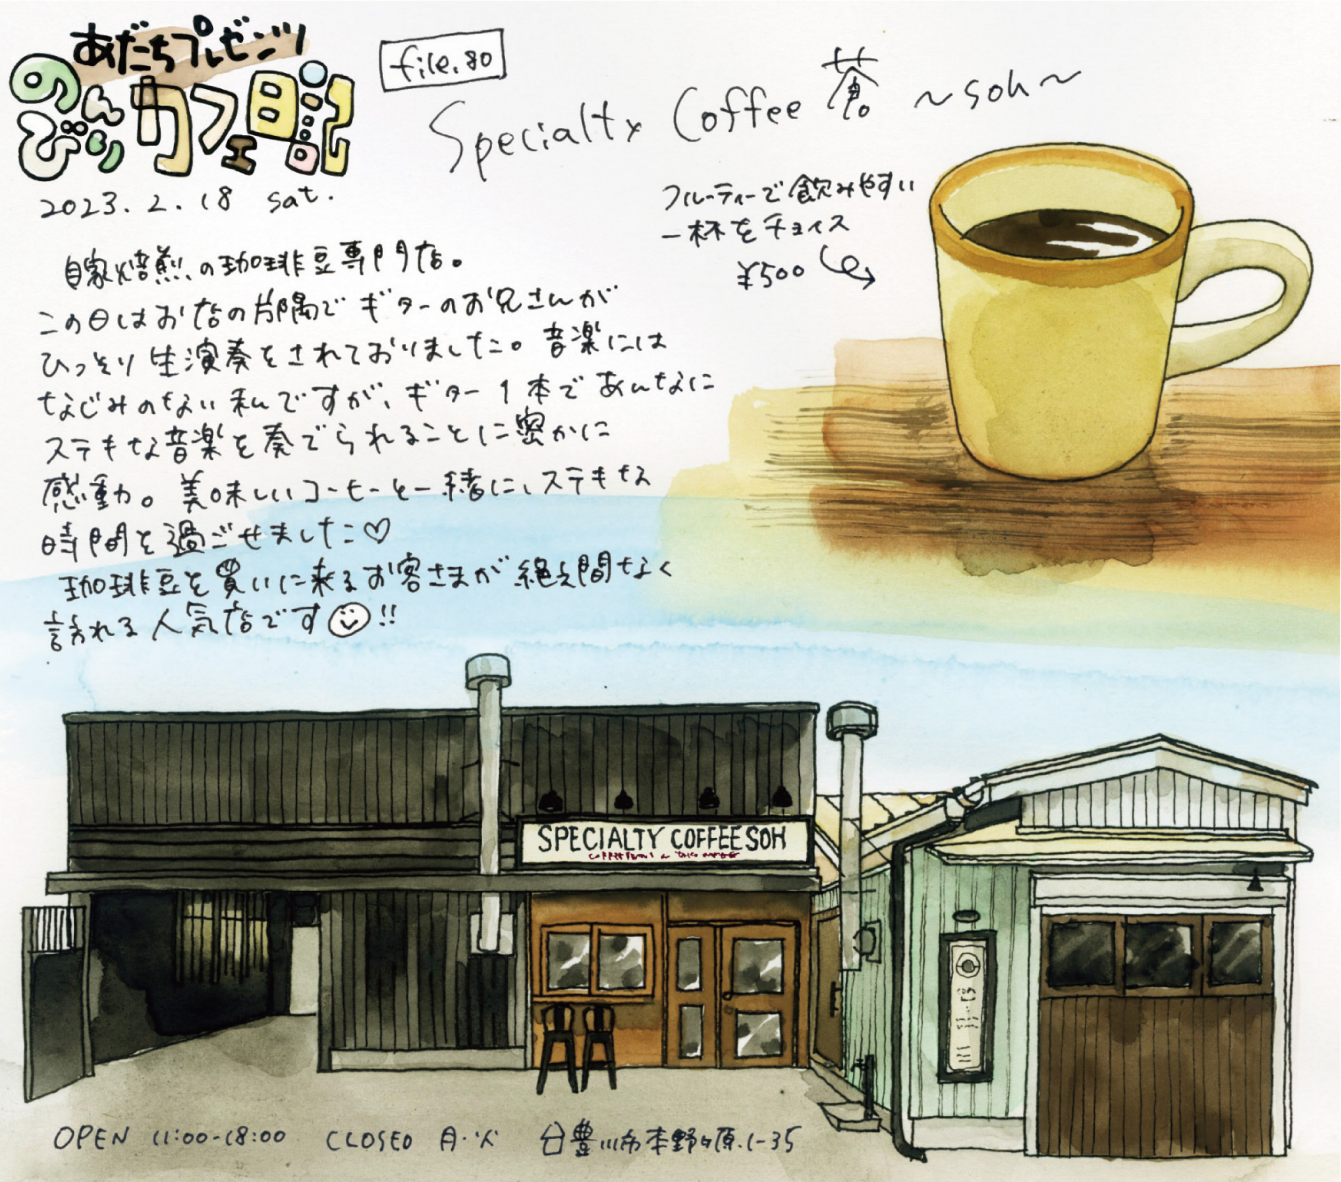 あだちプレゼンツ
のんびりカフェ日記
file.80
Specialty Coffee 蒼 〜soh〜
2023.2.18 sat.
フルーティーで飲みやすい
一杯をチョイス
¥500
自家焙煎の珈琲豆専門店。
この日はお店の片隅でギターのお兄さんが
ひっそり生演奏をされておりました。音楽には
なじみのない私ですが、ギター1本であんなに
ステキな音楽を奏でられることに密かに
感動。美味しいコーヒーと一緒に、ステキな
時間を過ごせました♡
珈琲豆を買いに来るお客さまが絶え間なく
訪れる人気店です!!
SPECIALTY COFFEE SOH
OPEN 11:00-18:00 CLOSED 月・火 豊川市本野ヶ原.1-35